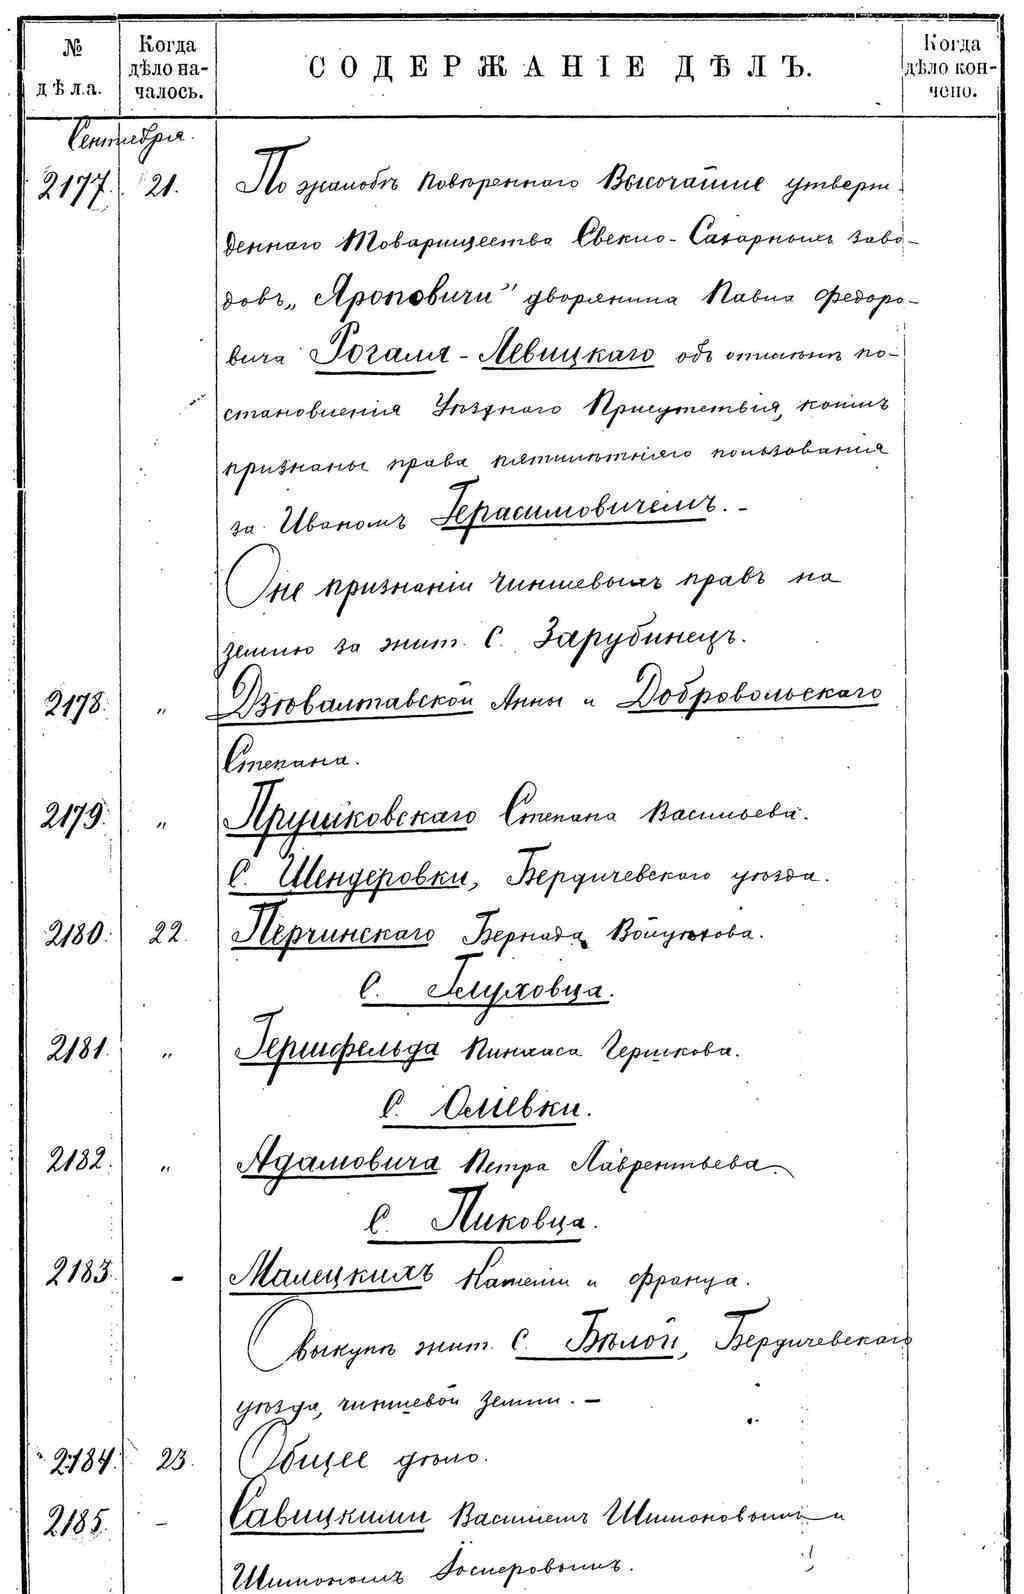 № дѣла.
Когда дѣло началось.
СОДЕРЖАНІЕ ДѢЛЪ.
Когда дѣло кончено.
Сентября.
2177. 21. По жалобѣ повѣреннаго Высочайше утверж-
деннаго Товарищества Свекло-Сахарныхъ заво-
довъ „Яроповичи" дворянина Павла Федоро-
вича Рогаля-Левицкаго объ отмѣнѣ по-
становленія Уѣзднаго Присутствія, коимъ
признаны права пятилѣтняго пользованія
за Иваномъ Герасимовичемъ.-
О не признаніи чиншевыхъ правъ на
землю за жит. С. Зарубинецъ.
2178. „ Дзювалтавской Анны и Добровольскаго
Степана.
2179. „ Прушковскаго Степана Васильева.
С. Шендеровки, Бердичевскаго уѣзда.
2180. 22. Перчинскаго Бернада
С. Глуховца.
2181. „ Гершфельда Пинхаса Гершкова.
С. Оліевки.
2182. „ Адамовича Петра Лаврентьева.
С. Пиковца.
2183. - Малецкихъ и Франца.
О выкупѣ жит. С. Бѣлой, Бердичевскаго
уѣзда, чиншевой земли.-
2184. 23. Общее дѣло.
2185. - Савицкими Василіемъ Шимоновымъ и
Шимономъ